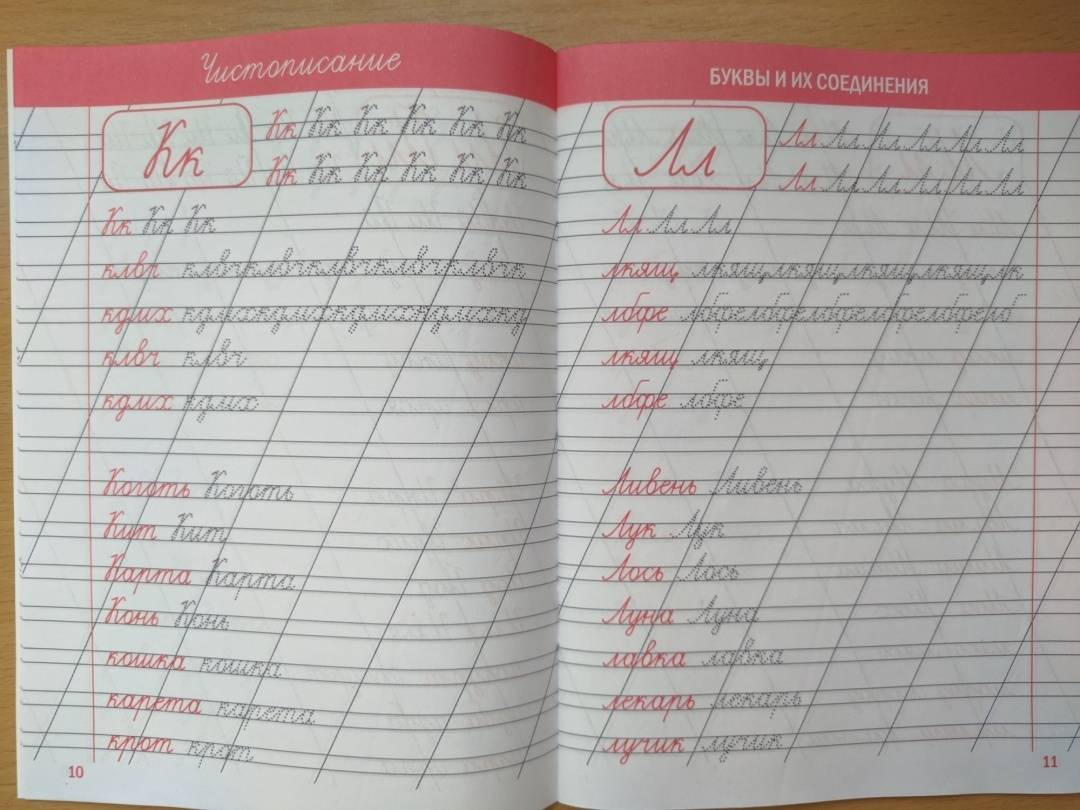 Чистописание
Кк
Кк Кк Кк Кк Кк Кк
Кк Кк Кк Кк Кк Кк
Кк Кк Кк
клвч клвчклвчклвчклвчклвчк
кдмх кдмхкдмхкдмхкдмхкд
клвч клвч
кдмх кдмх
Коготь Коготь
Кит Кит
Карта Карта
Конь Конь
кошка кошка
карета карета
крот крот
10
БУКВЫ И ИХ СОЕДИНЕНИЯ
Лл
Лл Лл Лл Лл Лл Лл
Лл Лл Лл Лл Лл Лл
Лл Лл Лл
лкящ лкящлкящлкящлкящлк
лбфе лбфелбфелбфелбфелбфелб
лкящ лкящ
лбфе лбфе
Ливень Ливень
Лук Лук
Лось Лось
Луна Луна
лавка лавка
лекарь лекарь
лучик лучик
11